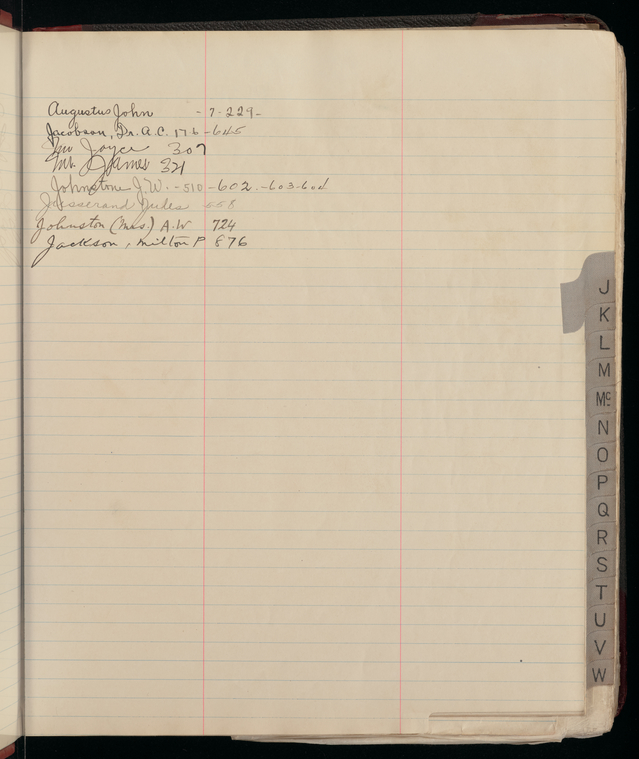 Augustus John - 7-229-
Jacobson, Dr. A.C. 176-645
Mr Joyce 307
Mr. James 321
Johnstone J.W. -510-602-603-604
Jusserand Jules 658
Johnston (Mrs.) A.W 724
Jackson, Milton P 876
J
K
L
M
Mc
N
O
P
Q
R
S
T
U
V
W